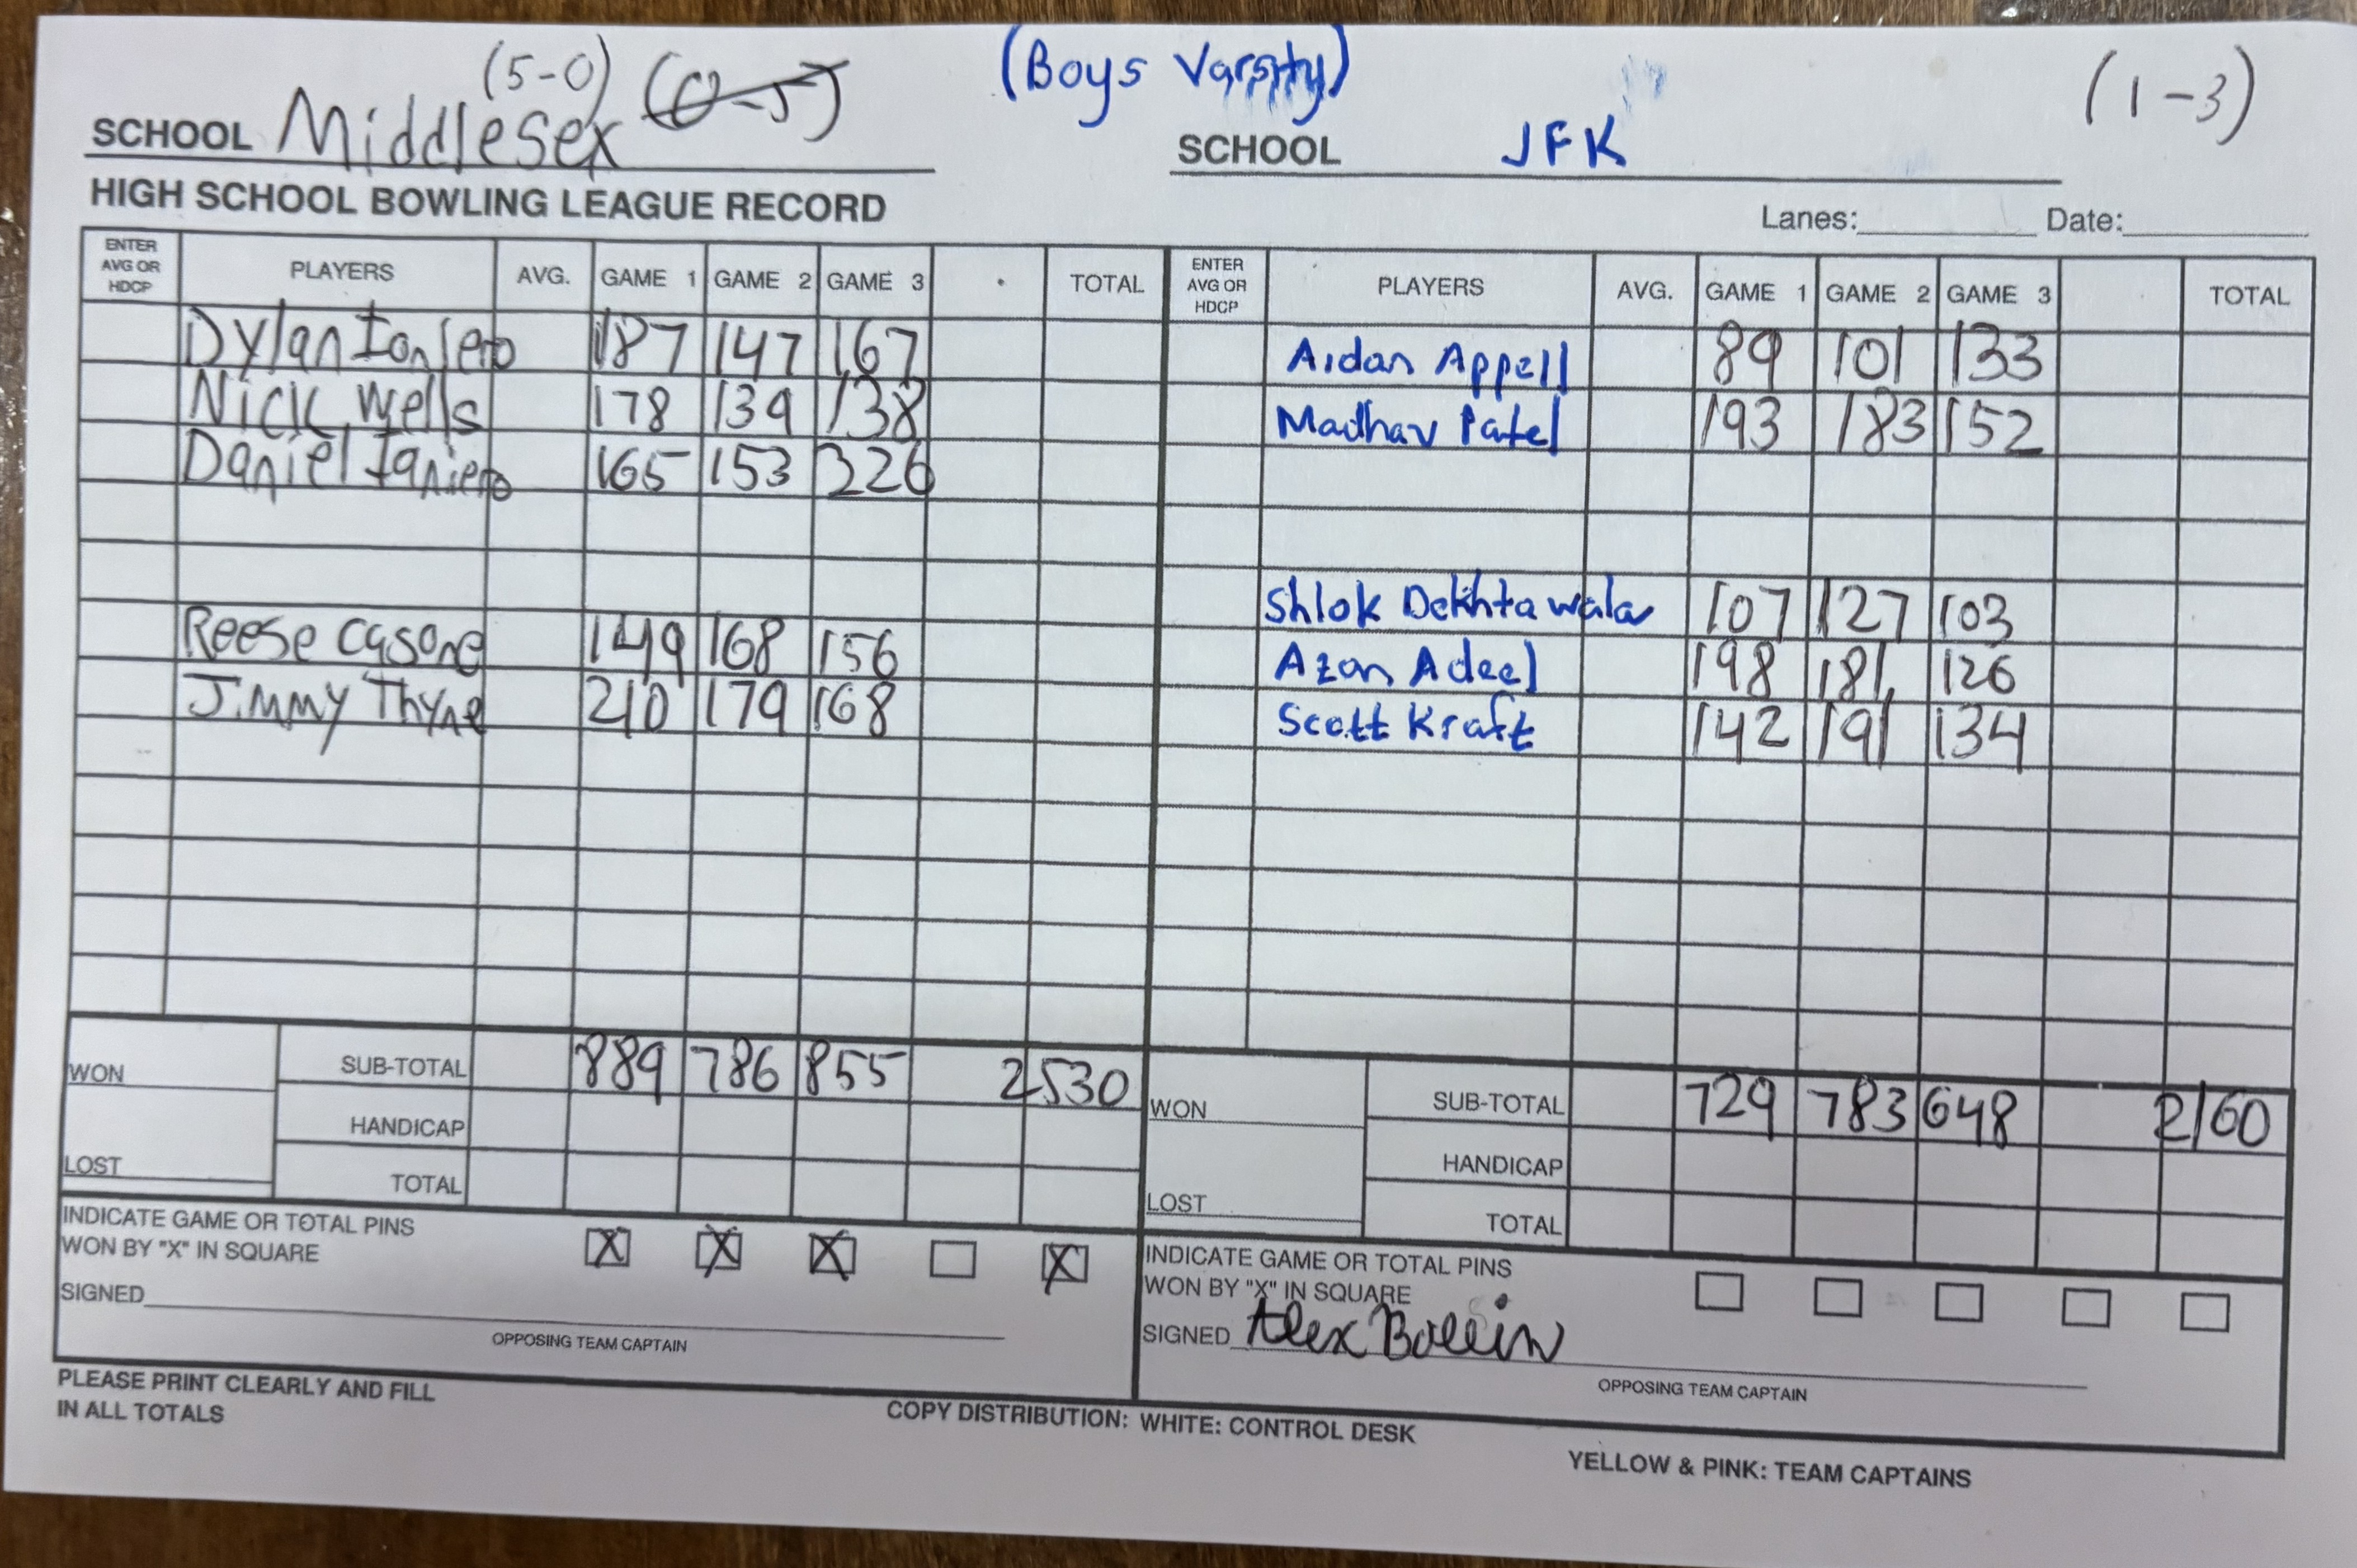 (5-0) (0-5) (Boys Varsity) (1-3)
SCHOOL Middlesex SCHOOL JFK
HIGH SCHOOL BOWLING LEAGUE RECORD Lanes: Date:
ENTER AVG OR HDCP PLAYERS AVG. GAME 1 GAME 2 GAME 3 TOTAL ENTER AVG OR HDCP PLAYERS AVG. GAME 1 GAME 2 GAME 3 TOTAL
Dylan 187 147 167 Aidan Appell 89 101 133
Nick Wells 178 139 138 Madhav Patel 193 183 152
Daniel Ianiero 165 153 226
Shlok Dekhtawala 107 127 103
Reese Casone 149 168 156 Azan Adeel 198 181 126
Jimmy Thyne 210 179 168 Scott Kraft 142 191 134
WON SUB-TOTAL 889 786 855 2530 WON SUB-TOTAL 729 783 648 2160
HANDICAP HANDICAP
LOST TOTAL LOST TOTAL
INDICATE GAME OR TOTAL PINS INDICATE GAME OR TOTAL PINS
WON BY "X" IN SQUARE X X X X WON BY "X" IN SQUARE
SIGNED SIGNED Alex
OPPOSING TEAM CAPTAIN OPPOSING TEAM CAPTAIN
PLEASE PRINT CLEARLY AND FILL
IN ALL TOTALS COPY DISTRIBUTION: WHITE: CONTROL DESK
YELLOW & PINK: TEAM CAPTAINS